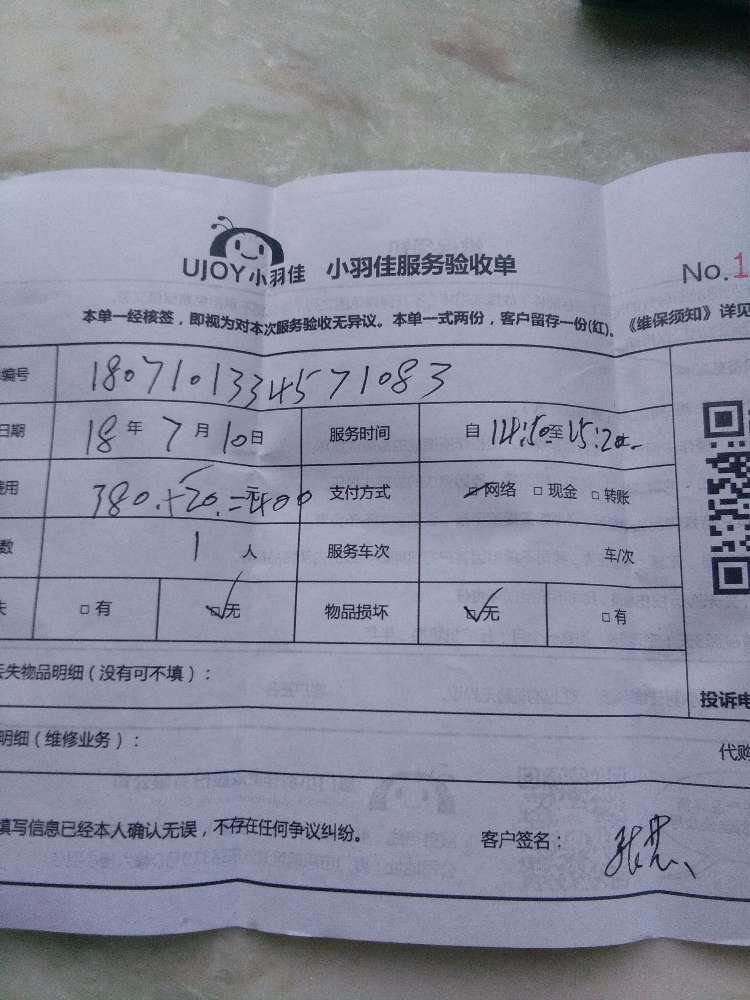 UJOY小羽佳 小羽佳服务验收单 No.1
本单一经核签，即视为对本次服务验收无异议。本单一式两份，客户留存一份(红)。《维保须知》详见
编号 1807101334571083
日期 18年7月10日 服务时间 自14:50至15:20
用 380.+20.=400元 支付方式 网络 □现金 □转账
数 1人 服务车次 车/次
失 □有 □无 物品损坏 □无 □有
丢失物品明细（没有可不填）：
投诉电
明细（维修业务）：
代购
填写信息已经本人确认无误，不存在任何争议纠纷。 客户签名：